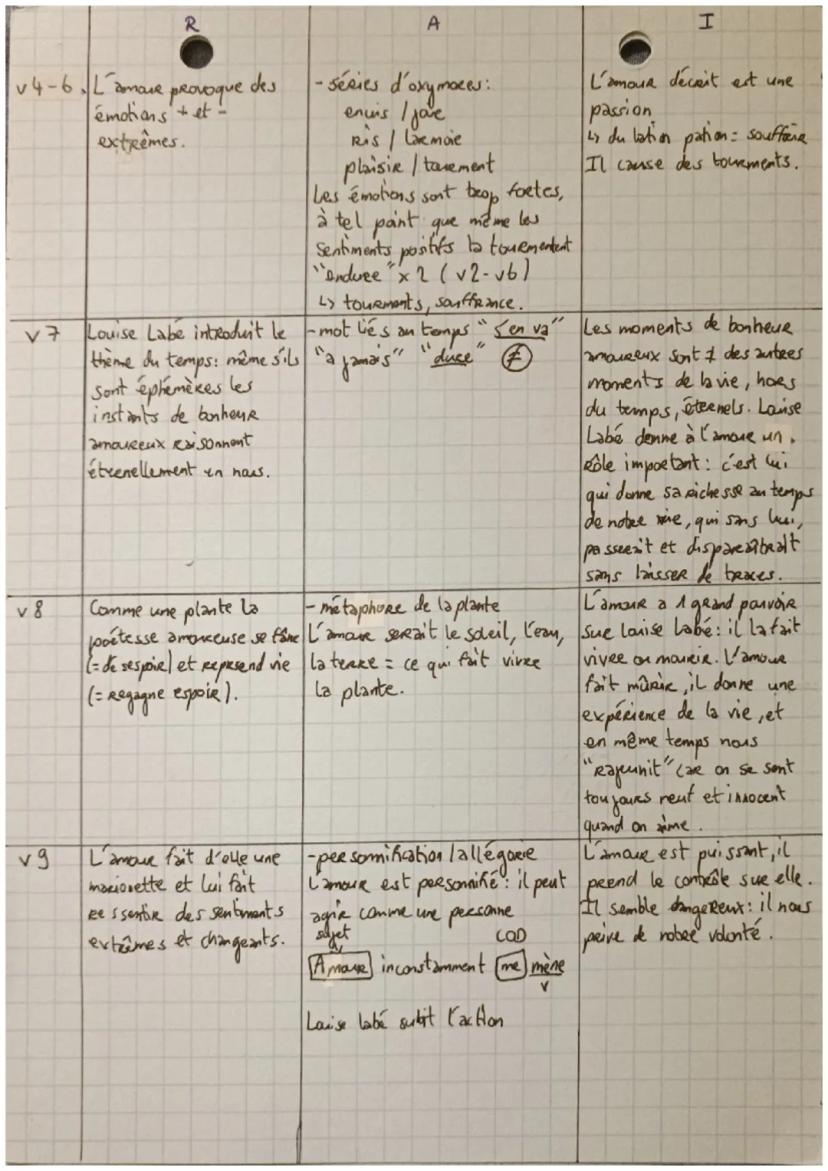 R A I
v4-6. L'amour provoque des
émotions + et -
extrêmes.
- séries d'oxymores :
enuis / joie
Ris / larmoie
plaisir / tourment
Les émotions sont trop fortes,
à tel point que même les
sentiments positifs la tourmentent
"endure" x 2 (v2-v6)
↳ tourments, souffrance.
L'amour décrit est une
passion
↳ du latin pation = souffrir
Il cause des tourments.
v7
Louise Labé introduit le
thème du temps : même s'ils
sont éphémères les
instants de bonheur
amoureux raisonnent
éternellement en nous.
- mot liés au temps "s'en va"
"a jamais" "dure" ≠
Les moments de bonheur
amoureux sont ≠ des autres
moments de la vie, hors
du temps, éternels. Louise
Labé donne à l'amour un
rôle important : c'est lui
qui donne sa richesse au temps
de notre vie, qui sans lui,
passerait et disparaîtrait
sans laisser de traces.
v8
Comme une plante la
poétesse amoureuse se fâne
(= désespoir) et reprend vie
(= regagne espoir).
- métaphore de la plante
L'amour serait le soleil, l'eau,
la terre = ce qui fait vivre
la plante.
L'amour a 1 grand pouvoir
sur louise Labé : il la fait
vivre ou mourir. L'amour
fait mûrir, il donne une
expérience de la vie, et
en même temps nous
"rajeunit" car on se sent
toujours neuf et innocent
quand on aime.
v9
L'amour fait d'elle une
marionette et lui fait
ressentir des sentiments
extrêmes et changeants.
- personnification / allégorie
L'amour est personnifié : il peut
agir comme une personne
sujet COD
Amour inconstamment me mène
v
Louise Labé subit l'action
L'amour est puissant, il
prend le contrôle sur elle.
Il semble dangereux : il nous
prive de notre volonté.